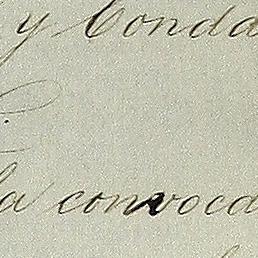 y Conda
la convoca